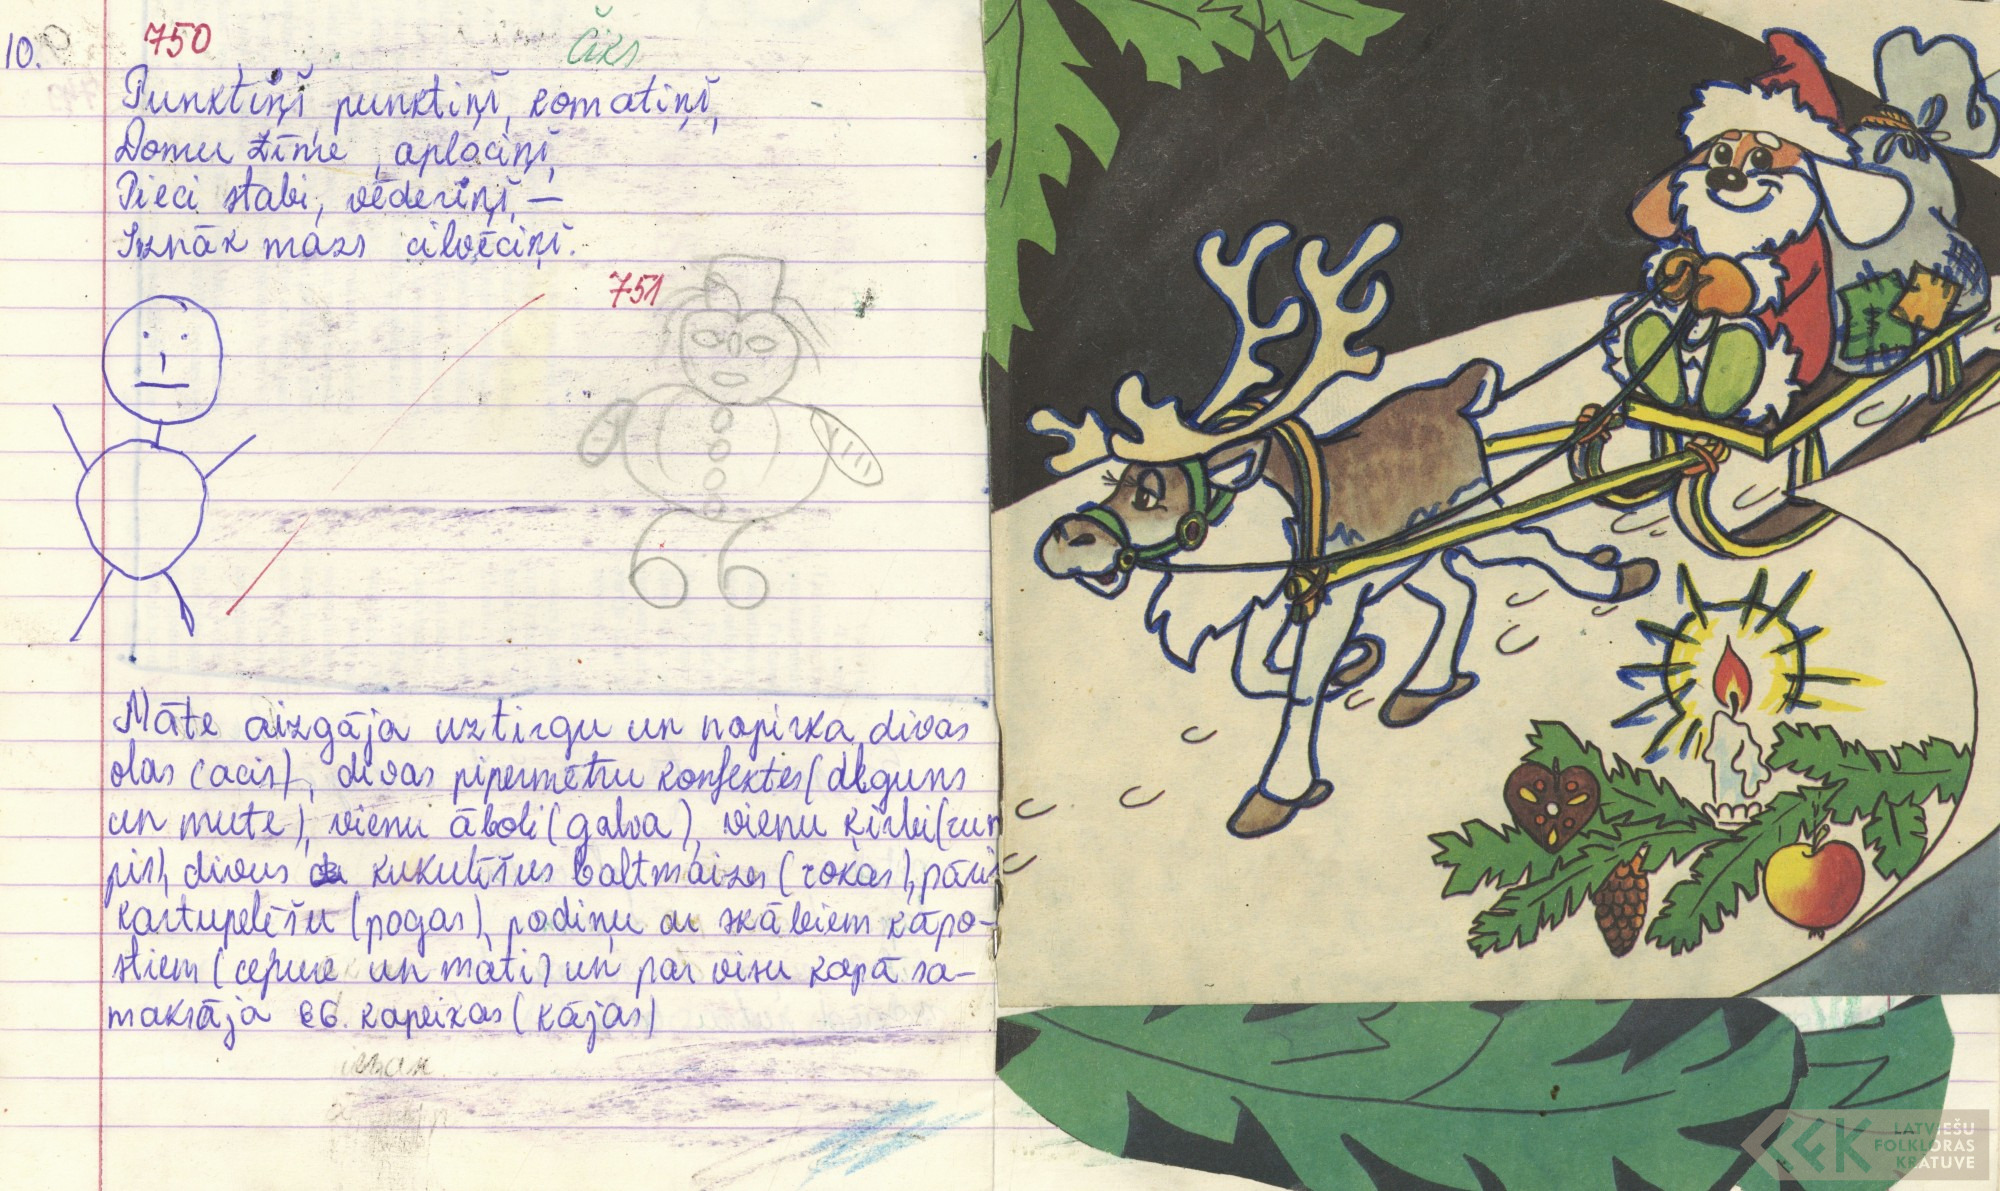 10.
750
Čiks
Punktiņš punktiņš, komatiņš,
Domu zīme, aplociņš,
Pieci stabi, vēderiņš, —
Iznāk mazs cilvēciņš.
751
Māte aizgāja uztirgu un nopirka divas
olas (acis), divas pipermētru konfektes (deguns
un mute), vienu āboli (galva), vienu ķirbi (rum
pis), divus kukulīšus baltmaizes (rokas), pāris
kartupelīšu (pogas), podiņu ar skābiem kāpo-
stiem (cepure un mati) un par visu kopā sa-
maksāja 66. kapeikas (kājas)
LATVIEŠU
FOLKLORAS
KRATUVE